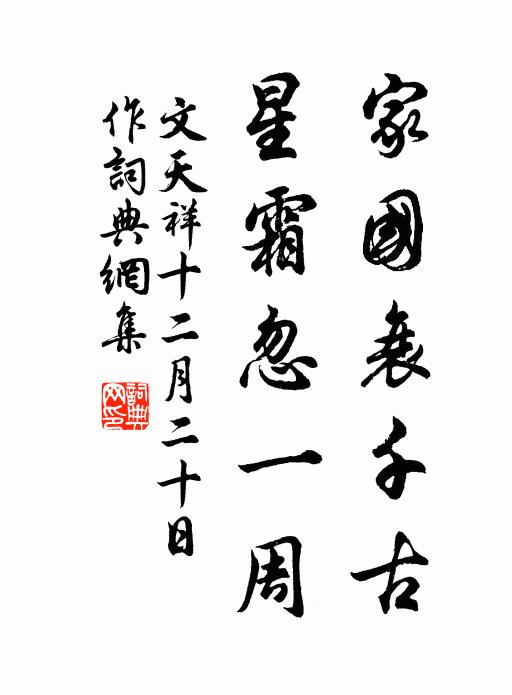 家國衰千古
星霜忽一周
文天祥十二月二十日
作詞典網集
詞典
网印